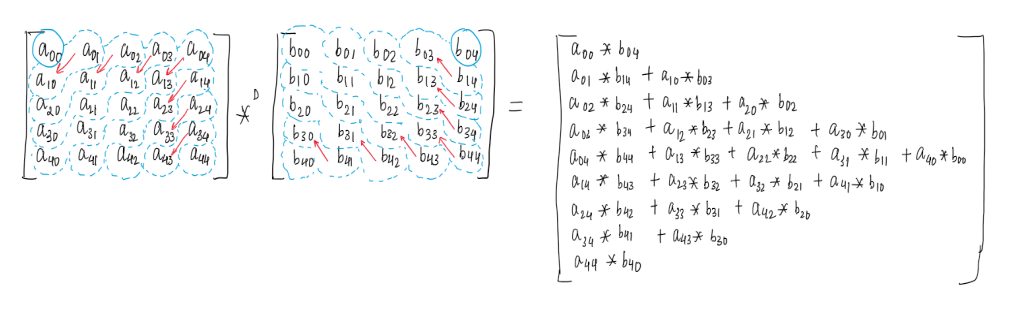 a00 a01 a02 a03 a04
a10 a11 a12 a13 a14
a20 a21 a22 a23 a24
a30 a31 a32 a33 a34
a40 a41 a42 a43 a44
* D
b00 b01 b02 b03 b04
b10 b11 b12 b13 b14
b20 b21 b22 b23 b24
b30 b31 b32 b33 b34
b40 b41 b42 b43 b44
=
a00 * b04
a01 * b14 + a10 * b03
a02 * b24 + a11 * b13 + a20 * b02
a03 * b34 + a12 * b23 + a21 * b12 + a30 * b01
a04 * b44 + a13 * b33 + a22 * b22 + a31 * b11 + a40 * b00
a14 * b43 + a23 * b32 + a32 * b21 + a41 * b10
a24 * b42 + a33 * b31 + a42 * b20
a34 * b41 + a43 * b30
a44 * b40